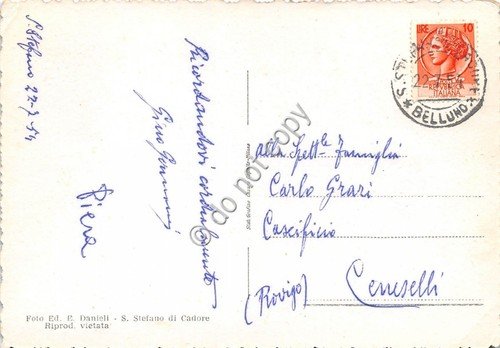 S. Stefano 22-7-54
Ricordandovi cordialmente
Gino
Piera
LIRE 10
REPVBBLICA
ITALIANA
S. STEF
22.7.54
* BELLUNO *
Alla Spett.le Famiglia
Carlo Grazi
Caseificio
Ceneselli
(Rovigo)
Foto Ed. E. Danieli - S. Stefano di Cadore
Riprod. vietata
© do not copy